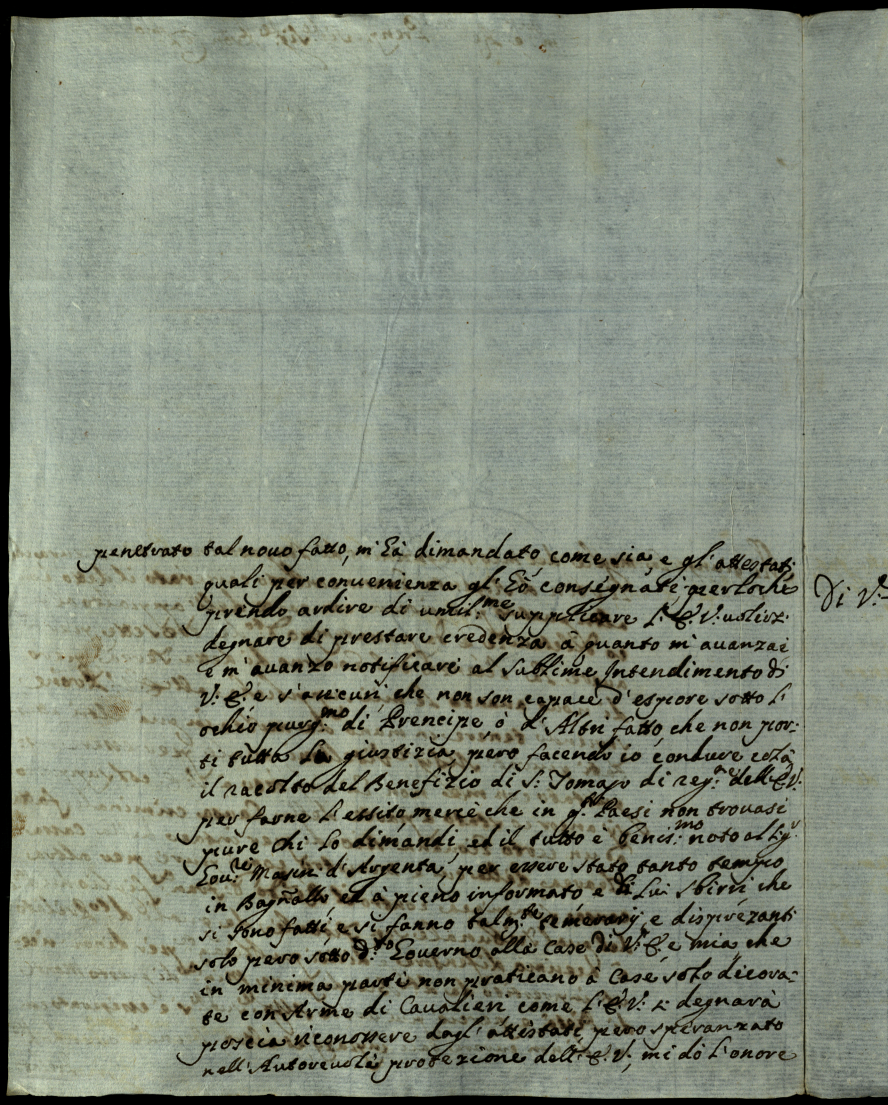 penetrato tal novo fatto, m'hà dimandato come sia, e gl'attestati
quali per convenienza gl'hò consegnati perloche
prendo ardire di umil.me supplicare L'E.V. volersi
degnare di prestare credenza à quanto m'avanzai
e m'avanzo notificare al sublime Intendimento di
V:E: e s'assicuri che non son capace d'espore sotto l'
ochio purg.mo di Prencipe ò d'Altri fatto che non por-
ti tutta la giustizia, però facendo io condure colà
il racolto del Benefizio di S: Tomaso di reg.e dell'E.V.
per farne l'essito, mercè che in q.ti Paesi non trovasi
pure chi lo dimandi, ed il tutto è benis.mo noto al Sig.r
Gov.re Masin d'Argenta, per essere stato tanto tempo
in Bagnallo ed à pieno informato e di lui sbirri che
si sono fatti, e si fanno talm.te temerarij e disprezanti
solo però sotto d.to Governo alla Case di V:E, e mia che
in minima parte non praticano à Case solo decora-
te con Arme di Cavalieri come L'E.V. degnarà
poscia riconossere dagl'attestati, però speranzato
nell'Autorevole protezione dell'E.V., mi dò l'onore
Di V.